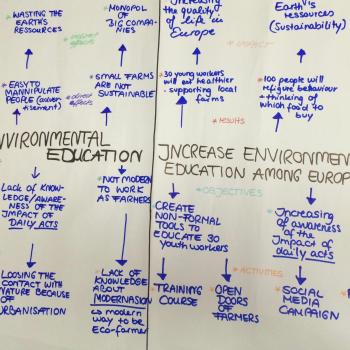 * WASTING THE EARTH'S RESSOURCES
* indirect effects
* MONOPOL OF BIG COMPANIES
* EASY TO MANNIPULATE PEOPLE
* direct effects
* SMALL FARMS ARE NOT SUSTAINABLE
ENVIRONMENTAL EDUCATION
Lack of KNOWLEDGE/AWARENESS OF THE IMPACT OF DAILY ACTS
* NOT MODERN TO WORK AS FARMERS
LOOSING THE CONTACT WITH NATURE BECAUSE OF URBANISATION
* LACK OF KNOWLEDGE ABOUT MODERNASION
↳ modern way to be Eco-farmer
Increasing the quality of life in Europe
Earth's ressources (Sustainability)
* IMPACT
* 30 young workers will eat healthier
· supporting local farms
* 100 people will refigure behaviour
* thinking of which food to buy
* RESULTS
INCREASE ENVIRONMEN
EDUCATION AMONG EUROP
* OBJECTIVES
* CREATE NON-FORMAL TOOLS TO EDUCATE 30 youth workers
* Increasing of awareness of the Impact of daily acts
* ACTIVITIES
* TRAINING COURSE
* OPEN DOORS OF FARMERS
* SOCIAL MEDIA CAMPAIGN